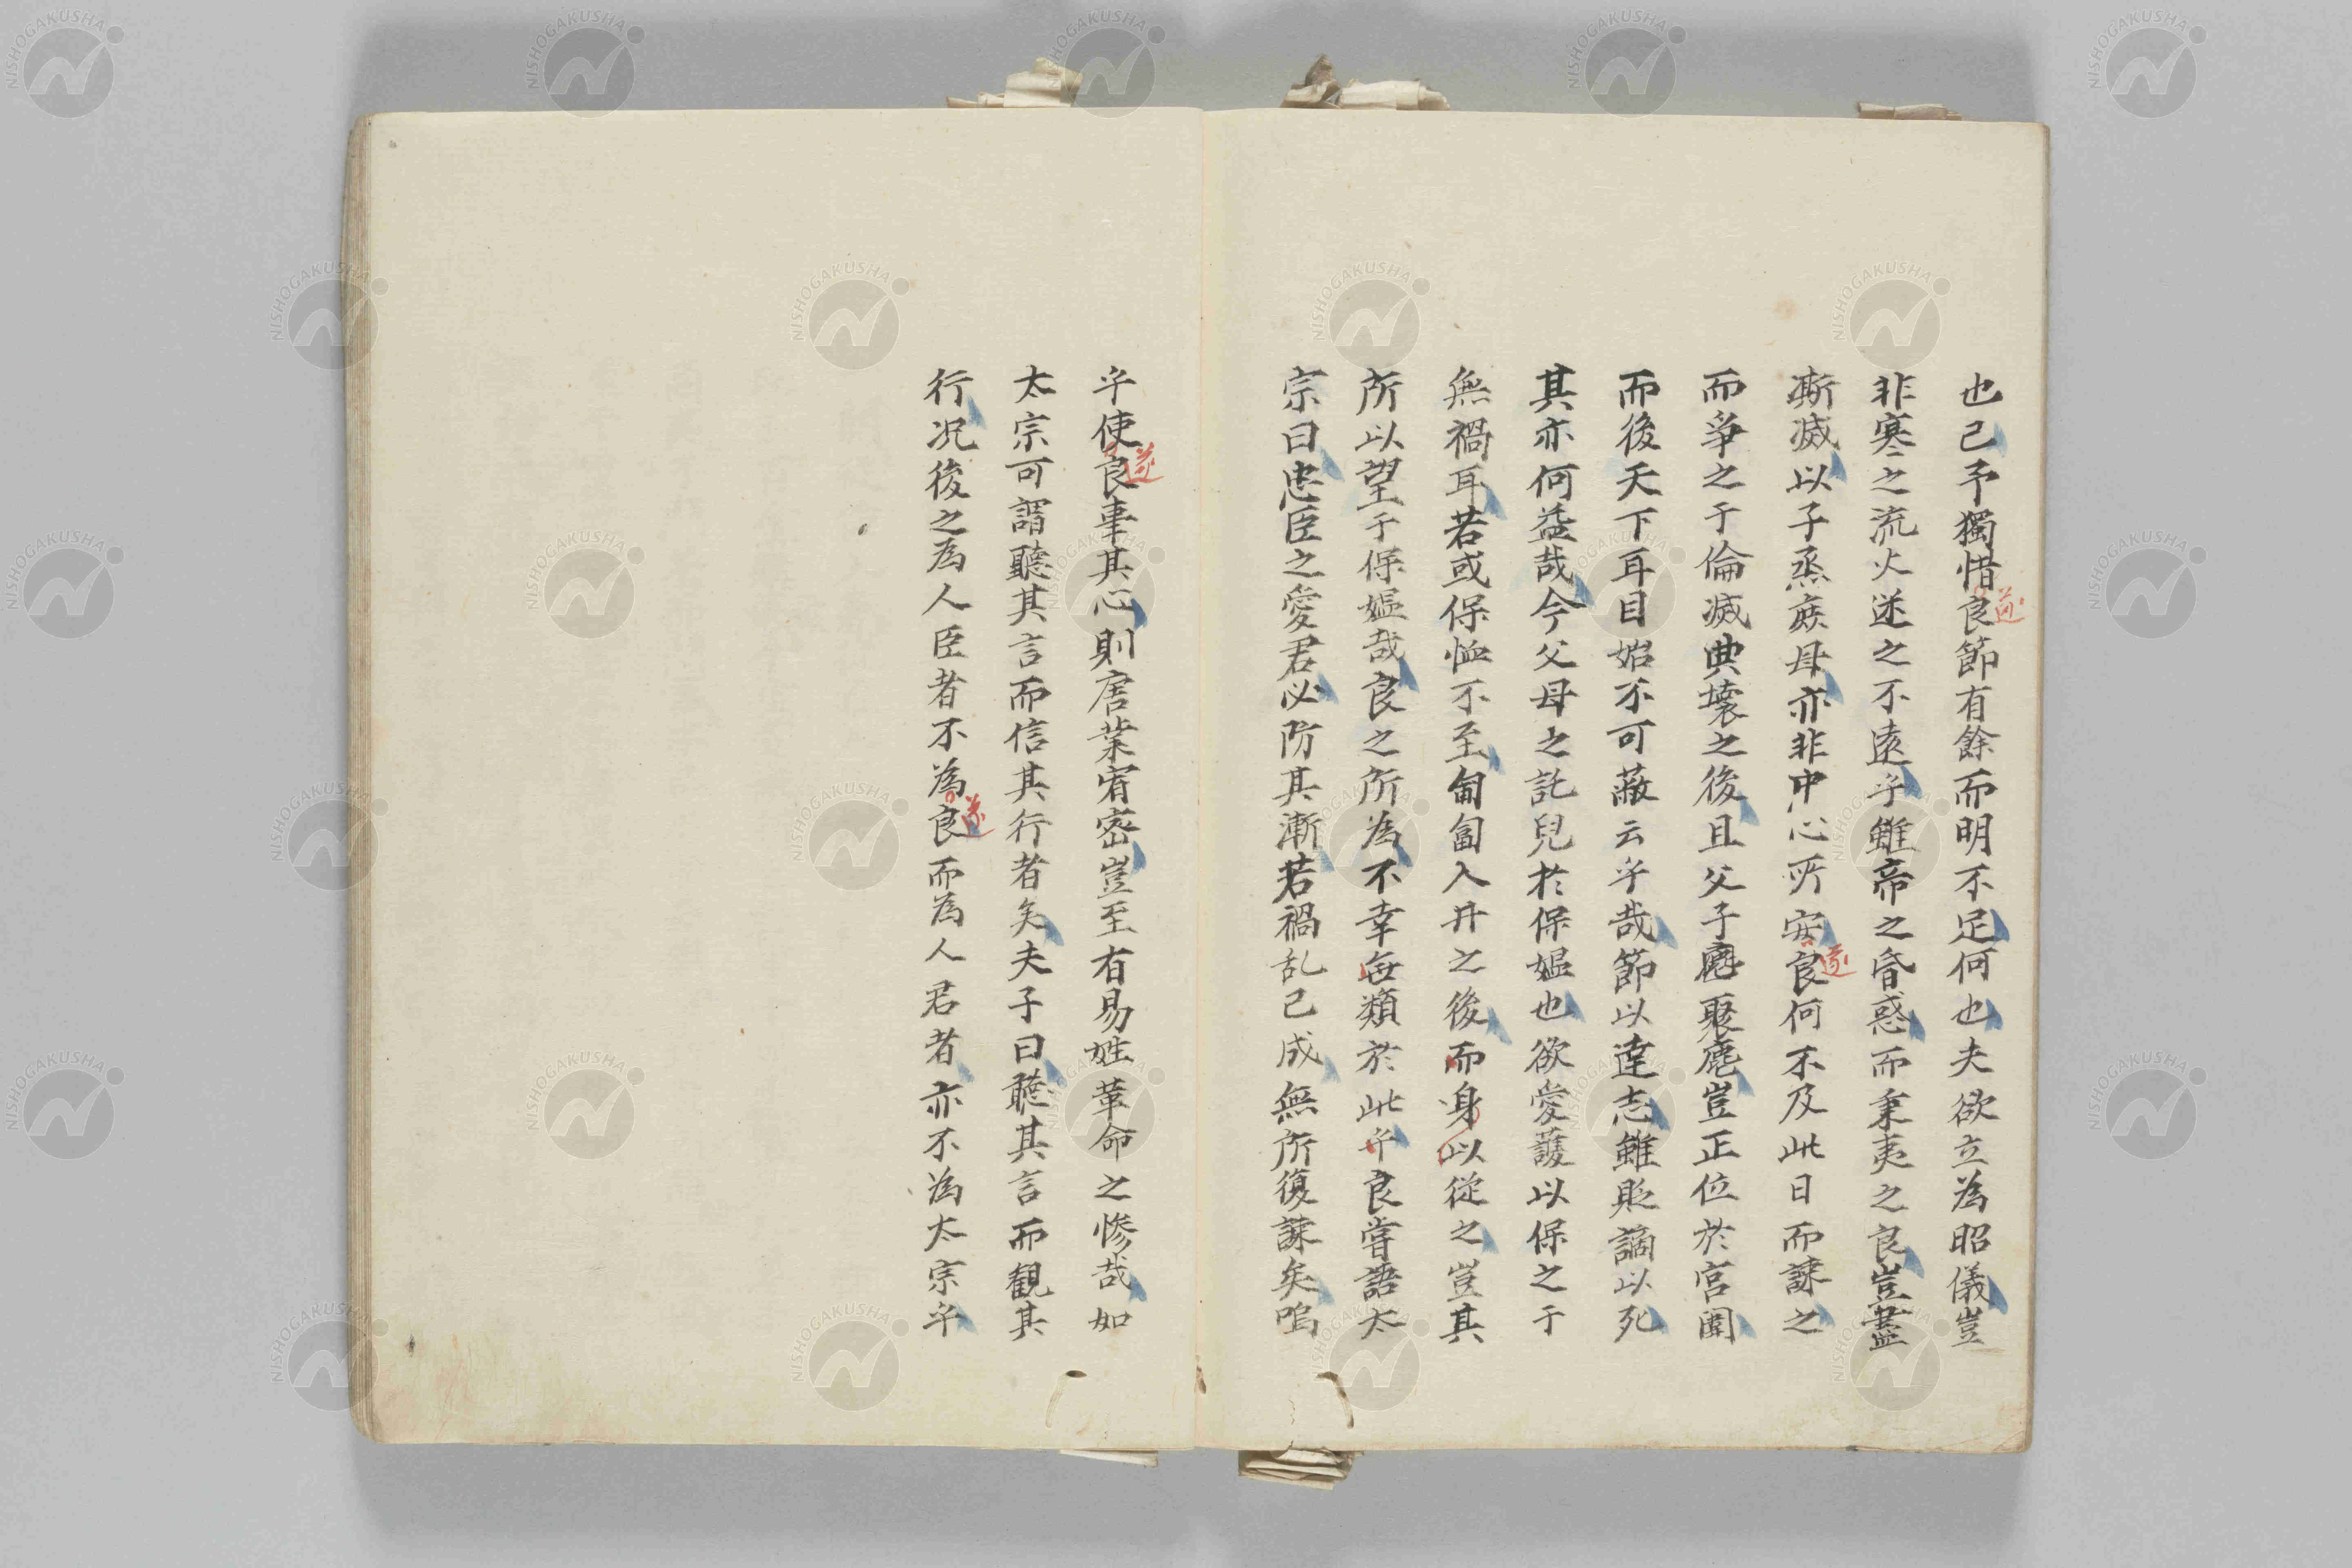 也已予獨惜良節有餘而明不足何也夫欲立為昭儀豈
遂
非寒之流火遂之不遠乎雖帝之昏惑而秉夷之良豈盡
斯滅以子烝庶母亦非中心所安良何不及此日而諫之
遂
而爭之于倫滅典壊之後且父子麀聚麀豈正位於宮闈
而後天下耳目始不可蔽云乎哉節以達志雖貶謫以死
其亦何益哉今父母之託兒於保嫗也欲愛護以保之于
無禍耳若或保恤不至匍匐入井之後而身以從之豈其
所以望于保嫗哉良之所為不幸每類於此乎良嘗語太
宗曰忠臣之愛君必防其漸若禍乱已成無所復諫矣嗚
乎使良事其心則唐業宥密豈至有易姓革命之惨哉如
遂
太宗可謂聽其言而信其行者矣夫子曰聽其言而観其
行况後之為人臣者不為良而為人君者亦不為太宗乎
遂
NISHOGAKUSHA